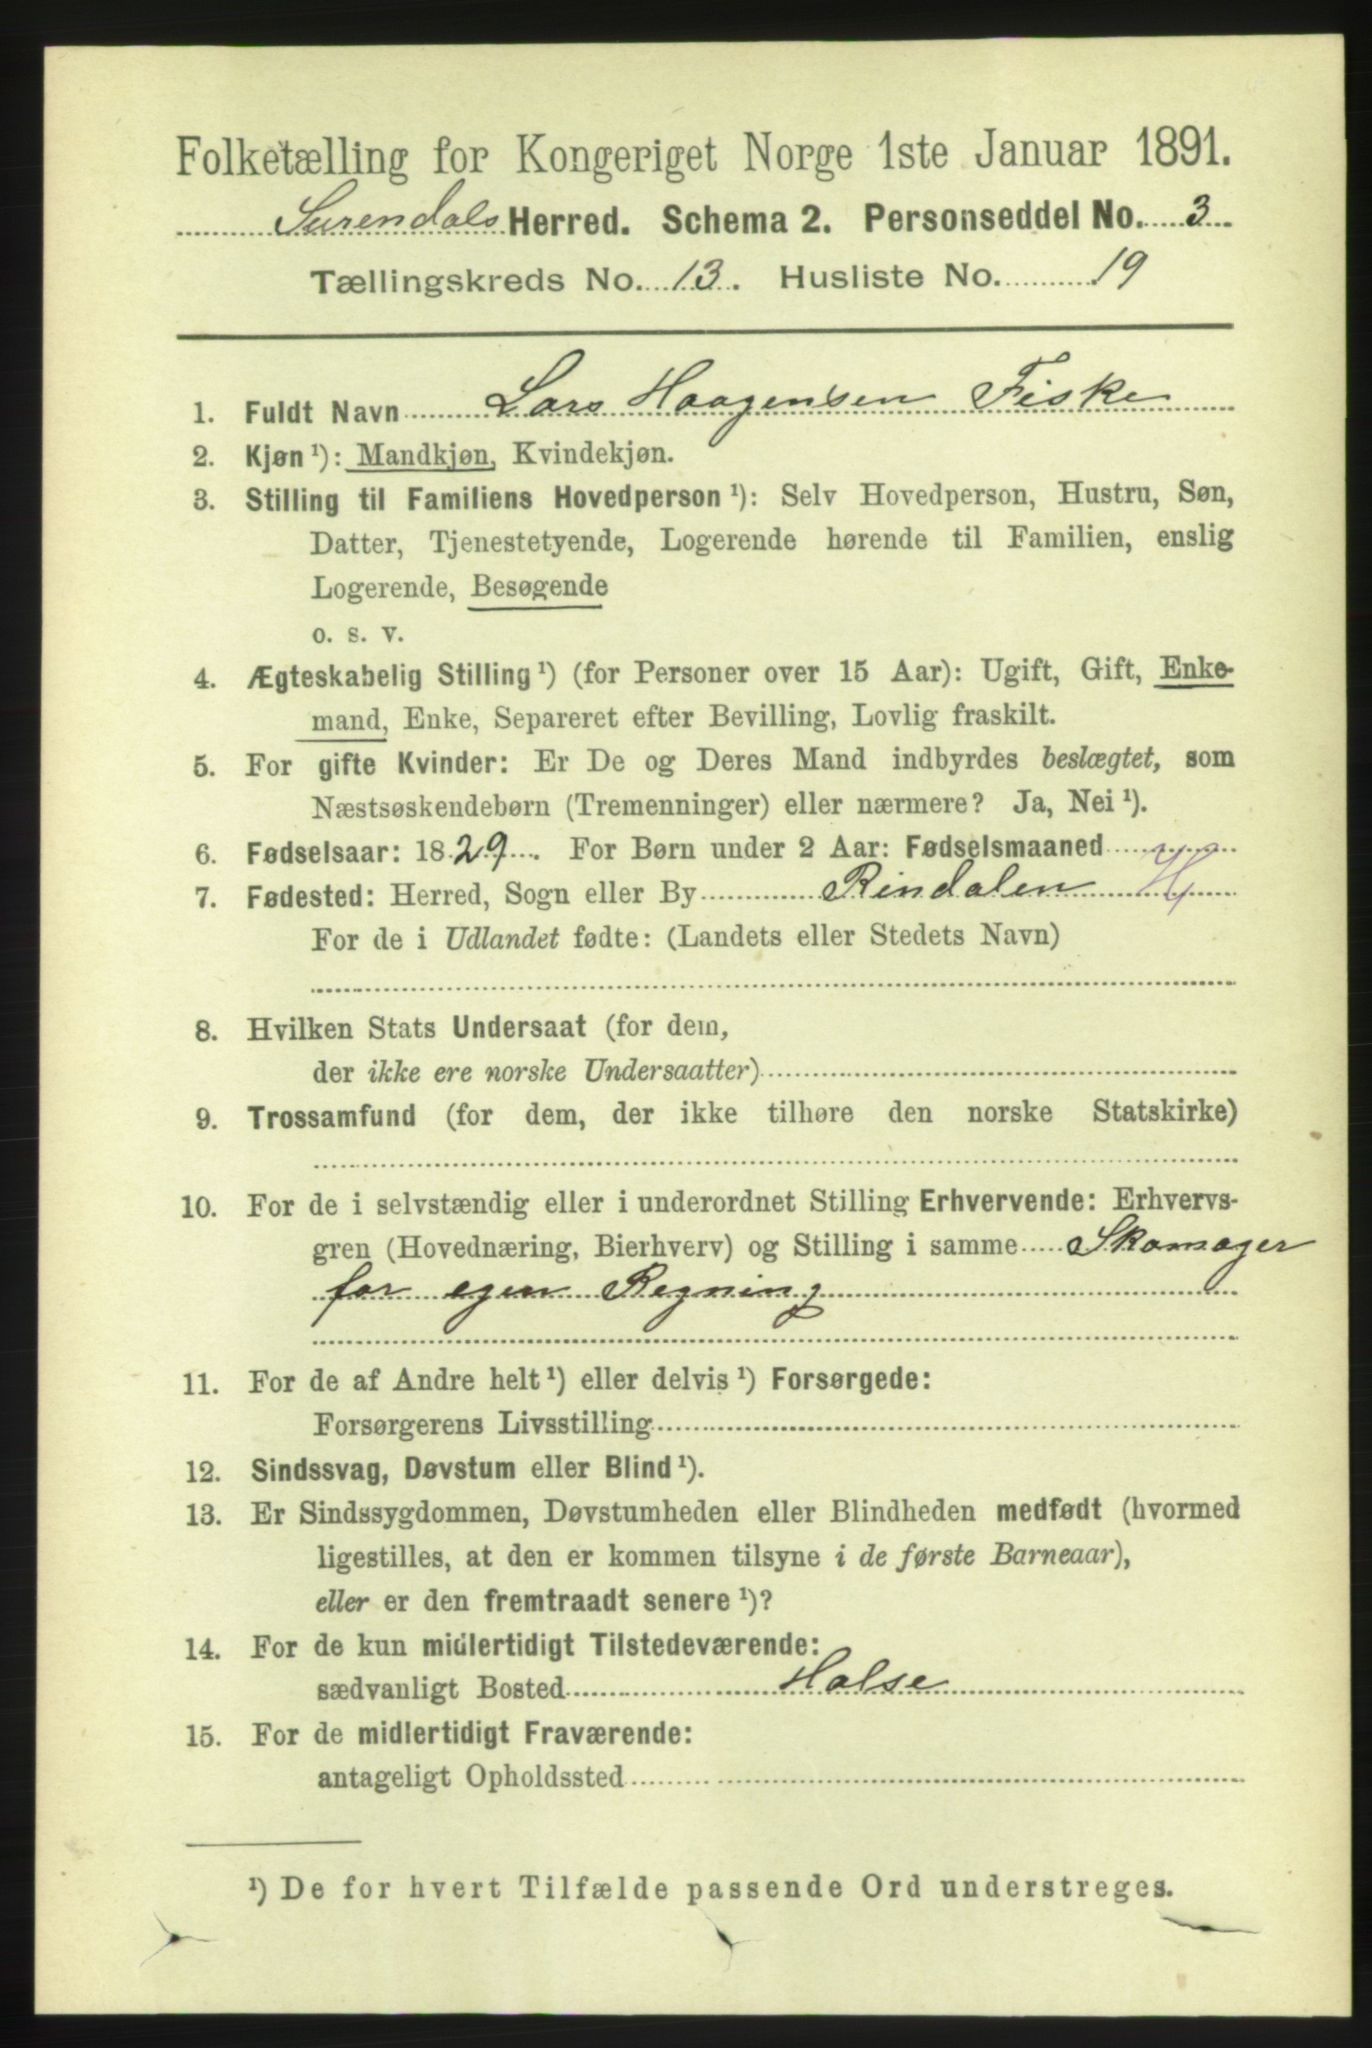 Folketælling for Kongeriget Norge 1ste Januar 1891.
Surendals Herred. Schema 2. Personseddel No. 3.
Tællingskreds No. 13. Husliste No. 19
1. Fuldt Navn Lars Haagensen Fiske
2. Kjøn ¹): Mandkjøn, Kvindekjøn.
3. Stilling til Familiens Hovedperson ¹): Selv Hovedperson, Hustru, Søn,
Datter, Tjenestetyende, Logerende hørende til Familien, enslig
Logerende, Besøgende
o. s. v.
4. Ægteskabelig Stilling ¹) (for Personer over 15 Aar): Ugift, Gift, Enke-
mand, Enke, Separeret efter Bevilling, Lovlig fraskilt.
5. For gifte Kvinder: Er De og Deres Mand indbyrdes beslægtet, som
Næstsøskendebørn (Tremenninger) eller nærmere? Ja, Nei ¹).
6. Fødselsaar: 1829. For Børn under 2 Aar: Fødselsmaaned
7. Fødested: Herred, Sogn eller By Rindalen H
For de i Udlandet fødte: (Landets eller Stedets Navn)
8. Hvilken Stats Undersaat (for dem,
der ikke ere norske Undersaatter)
9. Trossamfund (for dem, der ikke tilhøre den norske Statskirke)
10. For de i selvstændig eller i underordnet Stilling Erhvervende: Erhvervs-
gren (Hovednæring, Bierhverv) og Stilling i samme Skomager
for egen Regning
11. For de af Andre helt ¹) eller delvis ¹) Forsørgede:
Forsørgerens Livsstilling
12. Sindssvag, Døvstum eller Blind ¹).
13. Er Sindssygdommen, Døvstumheden eller Blindheden medfødt (hvormed
ligestilles, at den er kommen tilsyne i de første Barneaar),
eller er den fremtraadt senere ¹)?
14. For de kun midlertidigt Tilstedeværende:
sædvanligt Bosted Halse
15. For de midlertidigt Fraværende:
antageligt Opholdssted
¹) De for hvert Tilfælde passende Ord understreges.